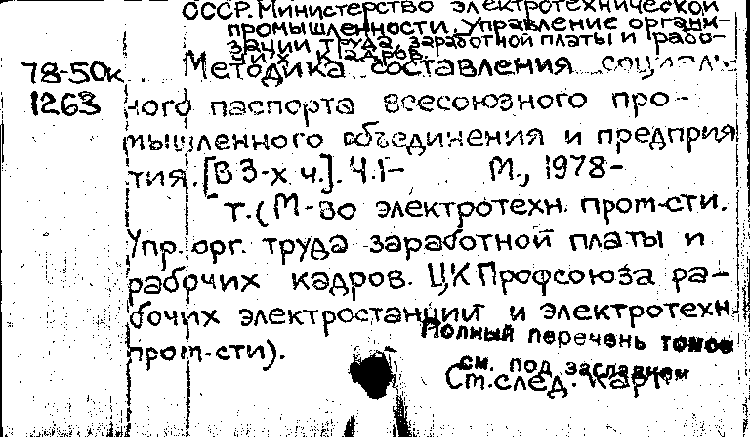 СССР. Министерство электротехнической
промышленности. Управление органи-
зации труда, заработной платы и рабо-
чих кадров.
78-50к
1263
Методика составления социаль-
ного паспорта всесоюзного про-
мышленного объединения и предприя
тия. [В 3-х ч.]. Ч.1- М., 1978-
т. (М-во электротехн. пром-сти.
Упр. орг. труда заработной платы и
рабочих кадров. ЦК Профсоюза ра-
бочих электростанций и электротехн.
пром-сти).
Полный перечень томов
см. под заглавием
См. след. карт